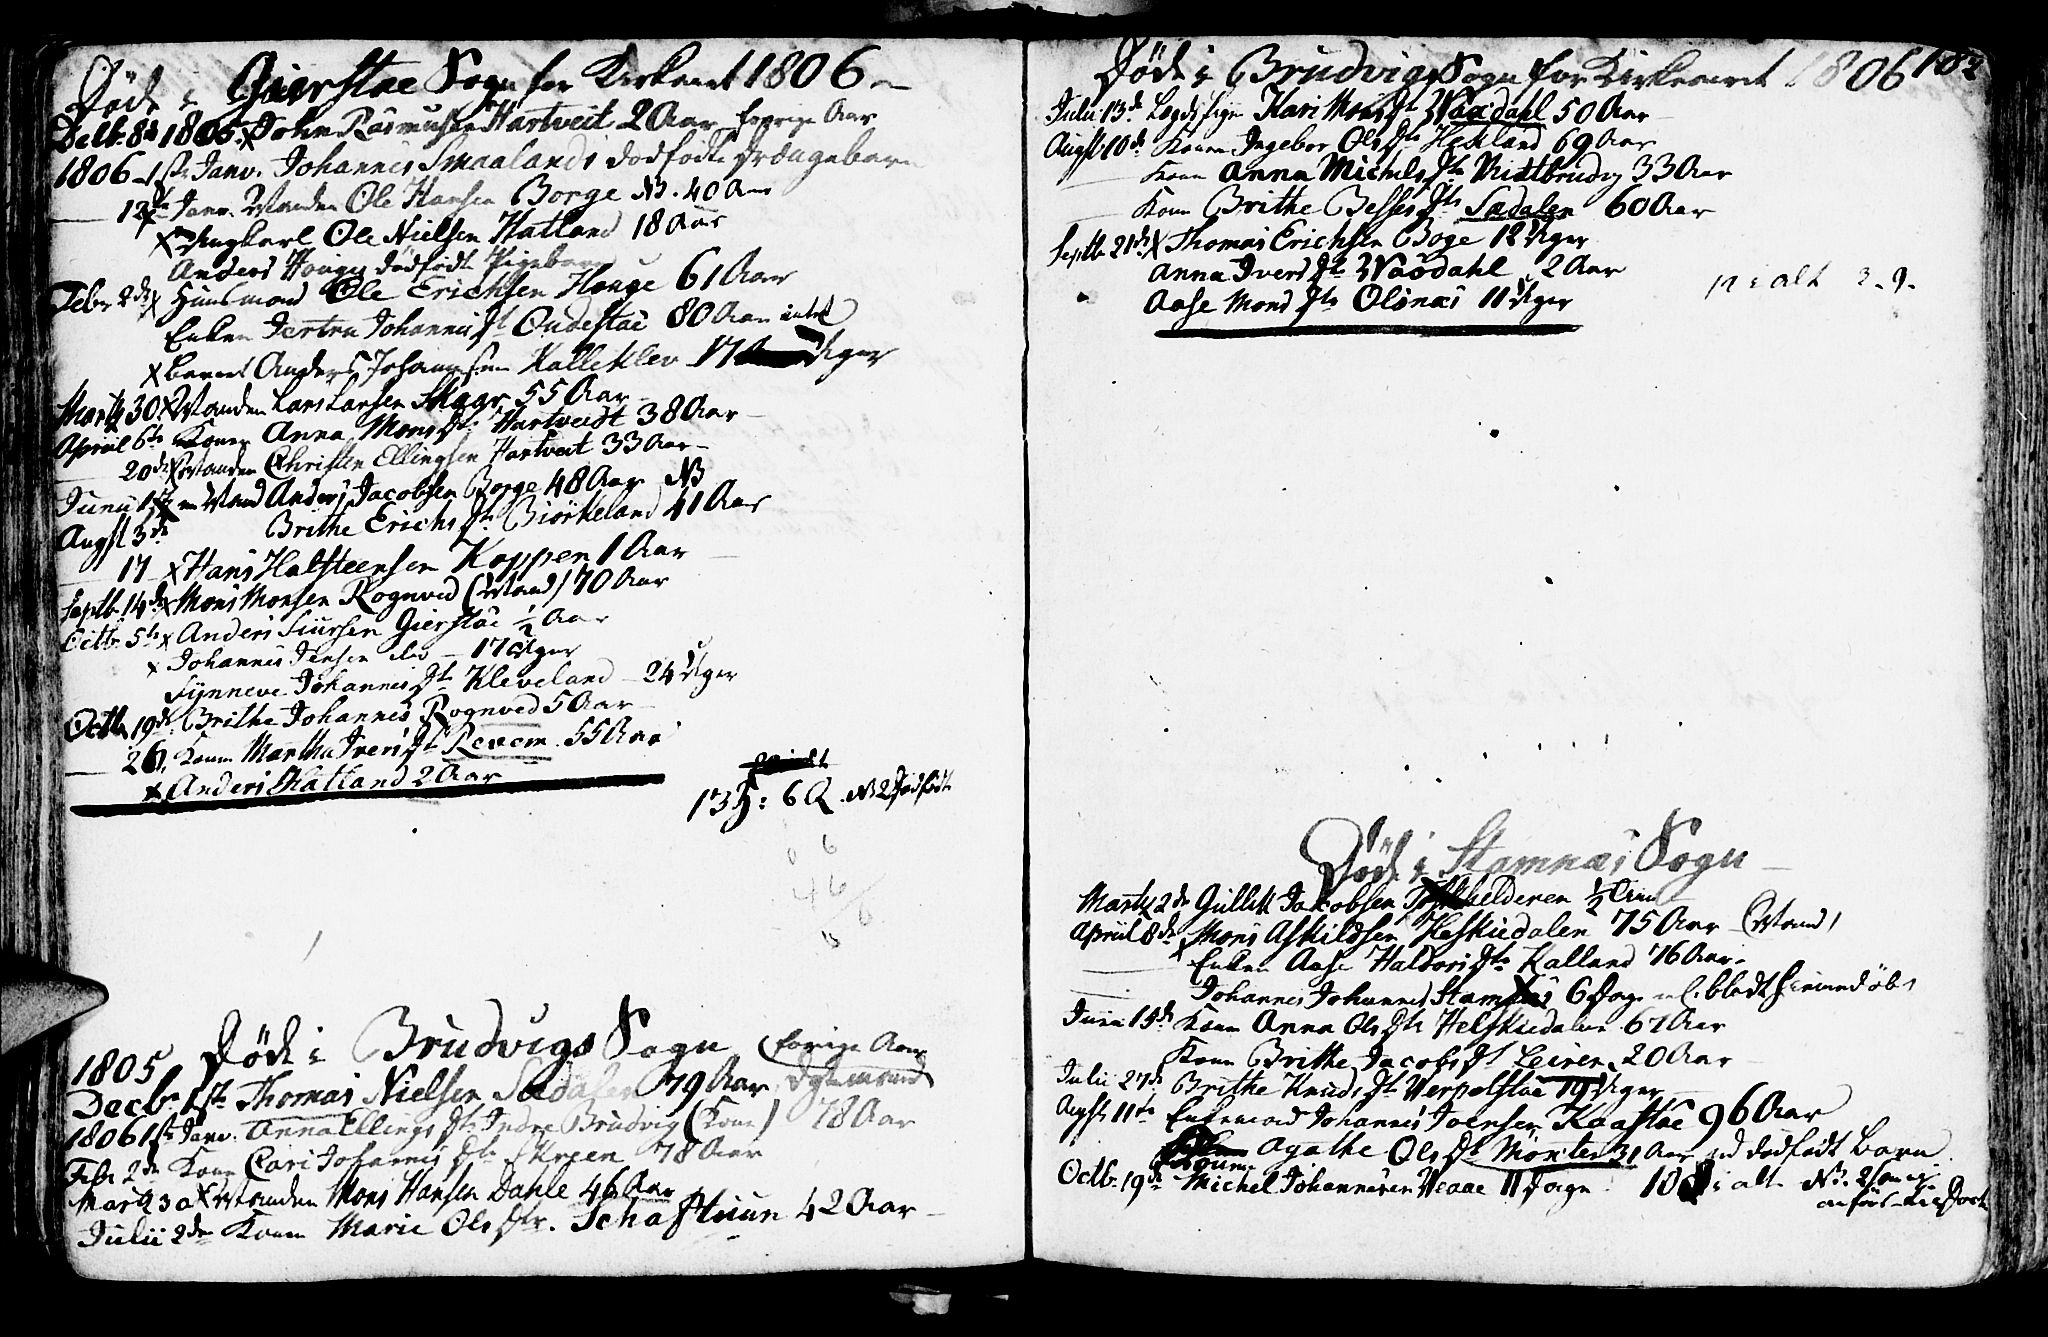 Døde i Gierstae Sogn for Kirkeaaret 1806
Decbr 8de 1805 x John Rasmusen Hartveit 2 Aar forrige Aar
1806 1ste Janv. Johannes Smaalands dødfødte Drængebarn
12te Janv. Manden Ole Hansen Borge NB. 40 Aar
x Ungkarl Ole Nielsen Hatland 18 Aar
Anders Houges dødfødte Pigebarn
Febr 2de x Huusmand Ole Erichsen Houge 61 Aar
Enken Johannis Dt. Oudestae 80 Aar
x barnet Anders Johannesen Kalleklev 17 Uger
Marty 30 x Manden Lars Larsen Skaar 55 Aar
Apriil 6te Konen Anna Mons Dt. Hartveidt 38 Aar
20de x Manden Christen Ellingsen Hartveit 33 Aar
Junii en Mand Anders Jacobsen Borge 48 Aar NB
Augst 3de Brithe Erichs Dt. Biørkeland 41 Aar
17 x Hans Halsteensen Koppen 1 Aar
Septb. 14de x Mons Monsen Rognved (Mand) 70 Aar
Octb. 5te x Anders Siursen Gierstae ½ Aar
x Johannes Jensen 17 Uger
Synneve Johannes Dt Kleveland 24 Uger
Octb. 19de Brithe Johannes Rognved 5 Aar
26. Konen Martha Ivers Dt Revem 55 Aar
x Anders Hatland 2 Aar
13 H: 6 Q. NB 2 Dødfødte
6
46
6
Døde i Brudvigs Sogn
1805 (forrige Aar
Decbr 1ste Thomas Nielsen Sædalen 79 Aar
1806 1ste Janv. Anna Ellings Dtr Indre Brudvig (Kone) 78 Aar
Febr 2de Kone Cari Johannes Dtr Skreen 78 Aar
Marty 30 x Manden Mons Hansen Dahle 46 Aar
Julii 2de Konen Marie Ols Dtr. Schaftuun 42 Aar
Døde i Brudvigs Sogn for Kirkeaaret 1806 182
Julii 13de Kari Mons Dt Waadahl 50 Aar
Augst 10de Konen Ingebor Ols Dtr Hekland 69 Aar
Kone Anna Michels Dtr Midtbrudvig 33 Aar
Kone Brithe Besses Dtr Sædalen 60 Aar
Septb 21de x Thomas Erichsen Boge 12 Uger
Anna Ivers Dt Waadahl 2 Aar
Aase Mons Dtr Olsnæs 11 Uger
i alt
Døde i Stamnæs Sogn
Marty 2de Gullik Jacobsen ½ Aar
Apriil 8de x Mons Askildsen Heskiedalen 75 Aar (Mand)
Enken Aase Haldors Dtr Kalland 76 Aar
Johannes Johannes Stamnes 6 Dage
Junii 15de Konen Anna Ols Dtr Helskiedalen 67 Aar
Kone Brithe Jacobs Dt Leiren 20 Aar
Julii 27de Brithe Knuds Dt Werpelstae 19 Uger
Augst 11te Enkemand Johannes Joensen Kaastae 96 Aar
Agathe Ols Dt Monten 31 Aar ved dødfødt Barn
Octb. 19de Michel Johannesen Veaae 11 Dage 10 i alt NB. 2